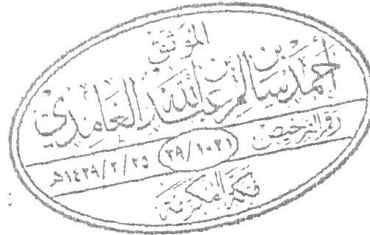 الموثق
أحمد بن سالم بن عبدالله الغامدي
رقم الترخيص ٣٩/١٠٢١ ١٤٣٩/٢/٢٥هـ
مكة المكرمة